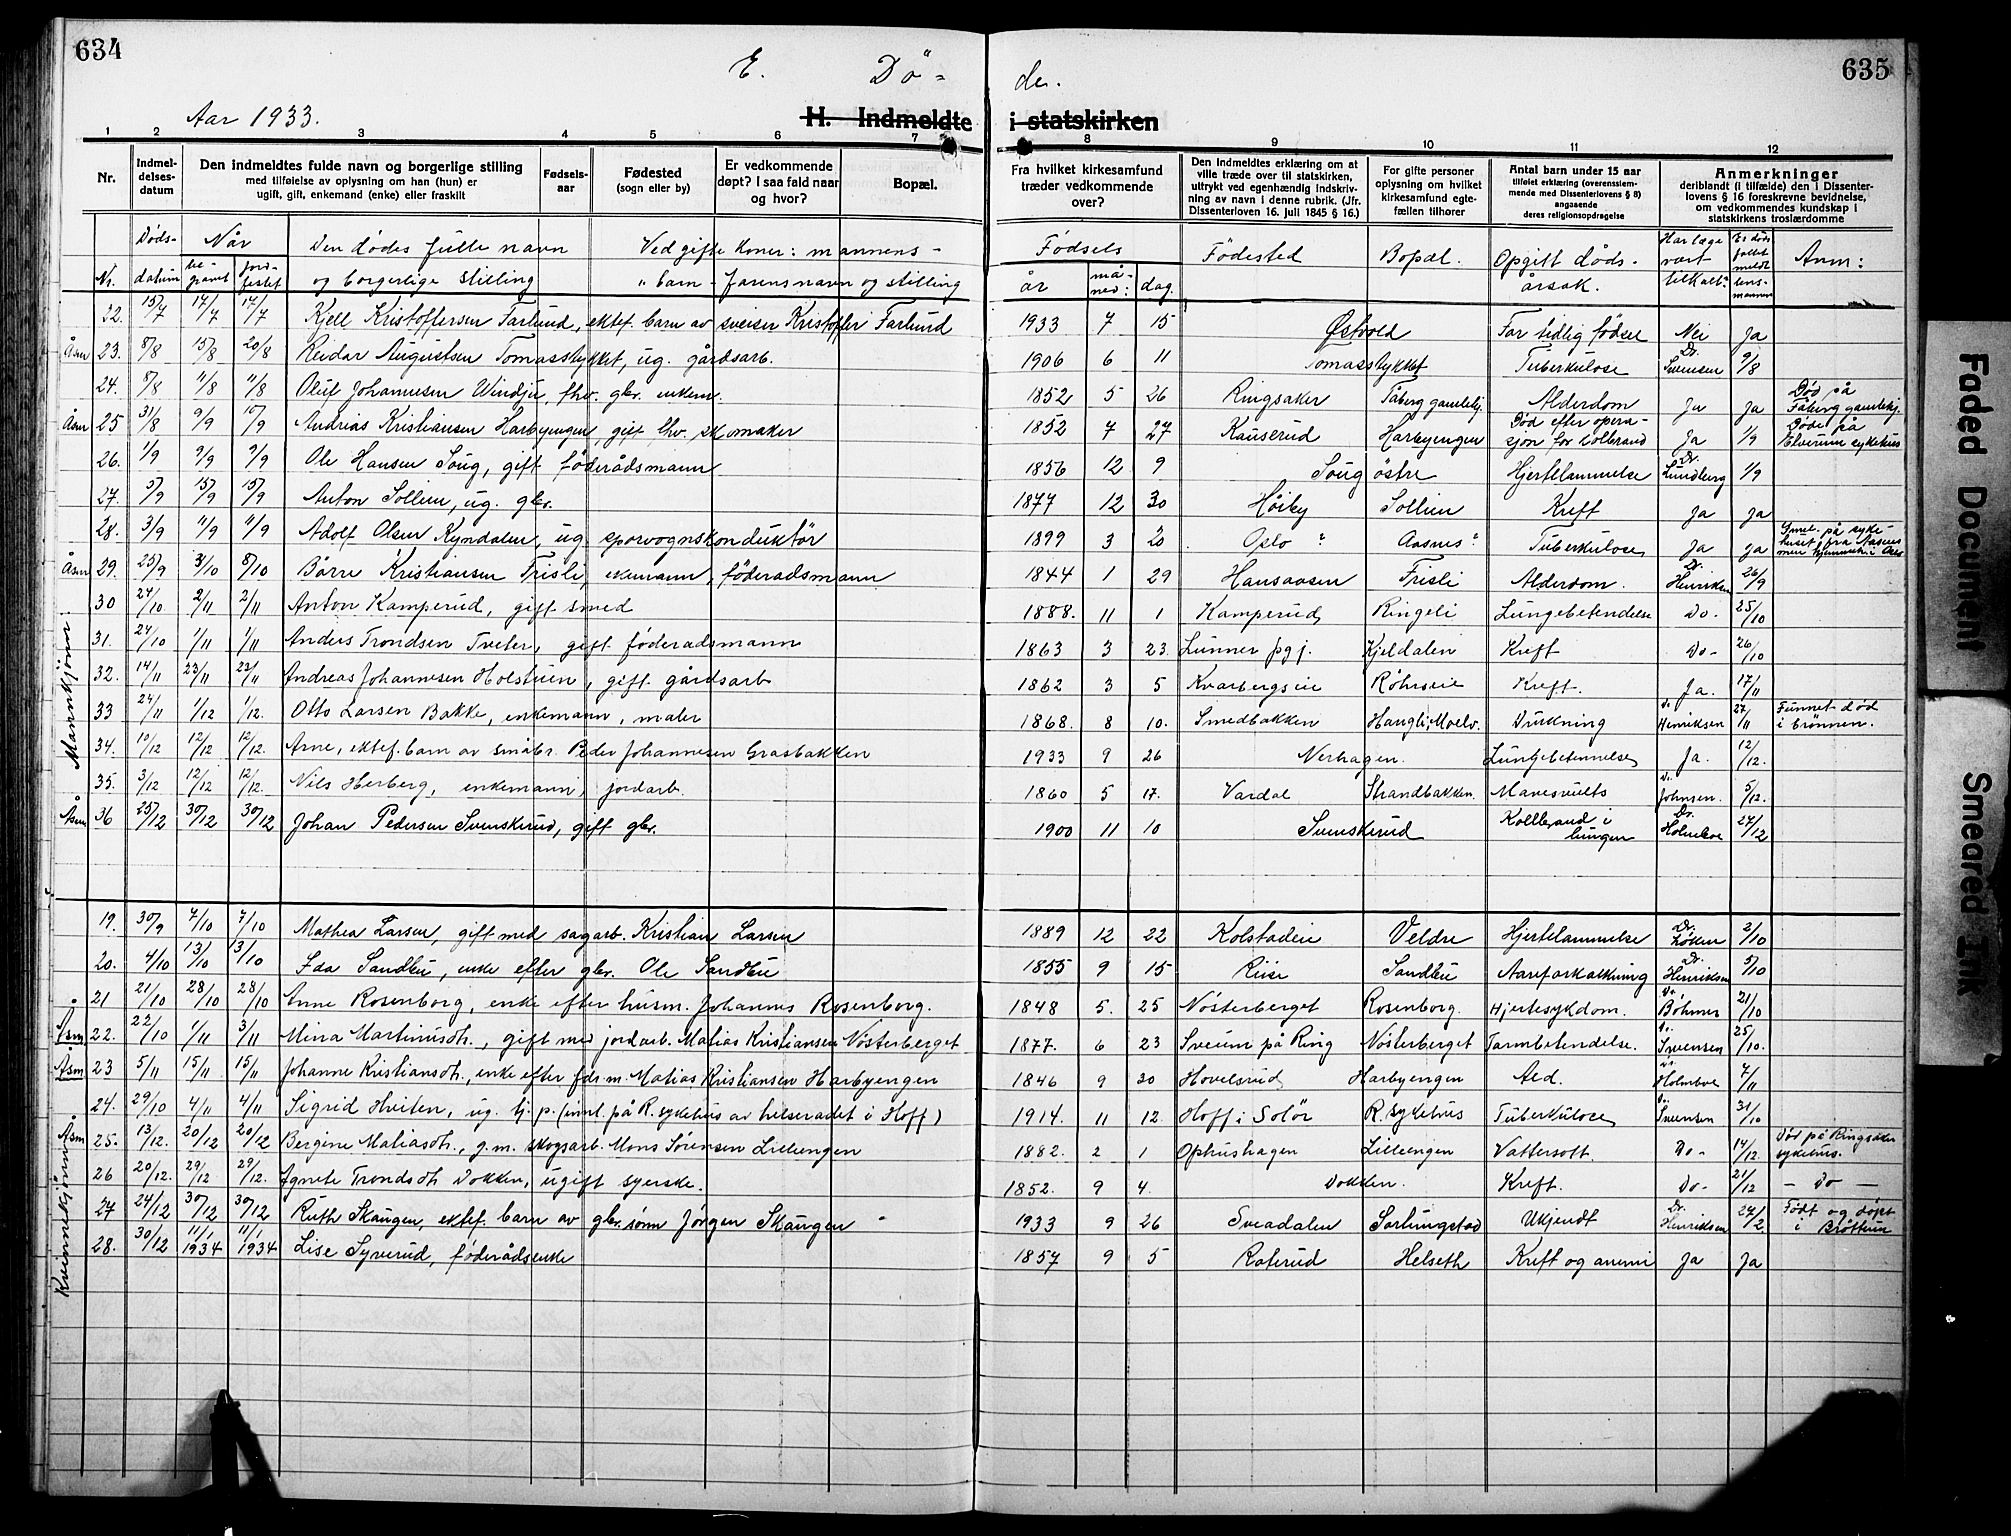 634
635
E. Dö= de.
Aar 1933.
H. Indmeldte i statskirken
1 2 3 4 5 6 7 8 9 10 11 12
Nr.
Indmel-
delses-
datum
Den indmeldtes fulde navn og borgerlige stilling
med tilføielse av oplysning om han (hun) er
ugift, gift, enkemand (enke) eller fraskilt
Fødsels-
aar
Fødested
(sogn eller by)
Er vedkommende
døpt? I saa fald naar
og hvor?
Bopæl.
Fra hvilket kirkesamfund
træder vedkommende
over?
Den indmeldtes erklæring om at
ville træde over til statskirken,
uttrykt ved egenhændig indskriv-
ning av navn i denne rubrik. (Jfr.
Dissenterloven 16. juli 1845 § 16.)
For gifte personer
oplysning om hvilket
kirkesamfund egte-
fællen tilhører
Antal barn under 15 aar
tilføiet erklæring (overensstem-
mende med Dissenterlovens § 8)
angaaende
deres religionsopdragelse
Anmerkninger
deriblandt (i tilfælde) den i Dissenter-
lovens § 16 foreskrevne bevidnelse,
om vedkommendes kundskap i
statskirkens troslærdomme
Nr.
Døds-
datum
Når
be-
gravet
jord-
festet
Den dødes fulle navn
og borgerlige stilling
Ved gifte koner: mannens -
" barn - farens navn og stilling
Fødsels
år
må-
ned:
dag.
Fødested
Bopæl.
Opgitt døds-
årsak.
Har læge
vært
tilkalt?
Er døds
fallet
meldt
lens-
mannen
Anm:
Mannkjønn:
22. 15/7 17/7 17/7 Kjell Kristoffersen Farlund, ektef. barn av sveiser Kristoffer Farlund 1933 7 15 Østvold For tidlig fødsel Nei Ja
Åsm 23. 8/8 15/8 20/8 Reidar Augustsen Tomasstykket, ug. gårdsarb. 1906 6 11 Tomasstykket Tuberkulose Dr. Svensen 9/8
24. 8/8 11/8 11/8 Oluf Johannesen Windju, fhv. gbr. enkem. 1852 5 26 Ringsaker Fåberg gamlehj. Alderdom Ja Ja Død på Fåberg gamlehj.
Åsm 25 31/8 9/9 10/9 Andreas Kristiansen Harbyengen, gift fhv. skomaker 1852 7 27 Kauserud Harbyengen Død efter opera-sjon for kolbrand Ja 1/9 Døde på Elverum sykehus
26. 1/9 9/9 9/9 Ole Hansen Soug, gift føderådsmann 1856 12 9 Soug østre Hjertelammelse Dr. Lundberg 1/9
27. 5/9 15/9 15/9 Anton Sollien, ug. gbr. 1877 12 30 Høiby Sollien Kreft Ja Ja
28. 3/9 11/9 11/9 Adolf Olsen Kyndalen, ug. sporvognskonduktør 1899 3 20 Oslo " Aasnes " Tuberkulose Ja Ja
Åsm 29. 25/9 3/10 8/10 Børre Kristiansen Frisli, enkemann, føderadsmann 1844 1 29 Hansaasen Frisli Alderdom. Dr. Henriksen 26/9
30 24/10 2/11 2/11 Anton Kamperud, gift smed 1888. 11 1 Kamperud Ringeli Lungebetendelse Do - 25/10
31. 24/10 1/11 1/11 Anders Trondsen Tveter, gift føderadsmann 1863 3 23. Lunner pgj. Kjeldalen Kreft Do - 26/10
32. 14/11 23/11 23/11 Andreas Johannesen Holstuen, gift gårdsarb 1862 3 5 Kvarbergseie Røhrseie Kreft. Ja. 17/11
33 24/11 1/12 1/12. Otto Larsen Bakke, enkemann, maler 1868. 8 10. Smedbakken Haugli, Moelv. Drukning Dr. Henriksen 27/11 Funnet død i brønnen.
34. 10/12 12/12 12/12. Arne, ektef. barn av småbr. Peder Johannesen Grasbakken 1933 9 26 Nerhagen. Lungebetennelse Ja. 12/12.
35. 3/12 12/12 12/12. Nils Herberg, enkemann, jordarb. 1860 5 17. Vardal Strandbakken. Mavesvulst Dr. Johnsen. 5/12.
Åsm 36 25/12 30/12 30/12 Johan Pedersen Svenskerud, gift gbr. 1900 11 10 Svenskerud Kollbrand i lungen Dr. Holmboe 27/12
Kvinnekjønn:
19. 30/9 7/10 7/10 Mathea Larsen, gift med sagarb. Kristian Larsen 1889 12 22 Kolstadeie Veldre Hjertelammelse Dr. Løken 2/10
20. 4/10 13/10 13/10 Ida Sandbu, enke efter gbr. Ole Sandbu 1855 9 15 Riise Sandbu Aareforkalkning Dr. Henriksen 5/10
21 21/10 28/10 28/10 Anne Rosenborg, enke efter husm. Johannes Rosenborg. 1848 5. 25 Nøsterberget Rosenborg. Hjertesykdom. Dr. Böhmer 21/10
Åsm 22. 22/10 1/11 3/11 Mina Martinusdt., gift med jordarb. Matias Kristiansen Nøsterberget 1877. 6 23 Sveum på Ring Nøsterberget Tarmbetendelse. Dr. Svensen 25/10.
Åsm 23 5/11 15/11 15/11 Johanne Kristiansdt., enke efter fdrm. Matias Kristiansen Harbyengen 1846 9 30 Hovelsrud Harbyengen Æld. Dr. Holmboe 7/11
24. 29/10 4/11 4/11 Sigrid Hviten, ug. tj. p. (innl. på R. sykehus av helseradet i Hoff) 1914. 11 12. Hoff i Solør R. sykehus Tuberkulose Dr. Svensen 31/10
Åsm 25. 13/12. 20/12 20/12 Bergine Matiasdt., g.m. skogsarb. Mons Sørensen Lilleengen 1882. 2 1 Ophushagen Lilleengen Vattersott. Do - 14/12. Død på Ringsaker sykehus.
26 20/12. 29/12 29/12. Agnete Trondsdt. Dokken, ugift syerske. 1852. 9 4. Dokken. Kreft. Do - 21/12 - Do -
27 24/12 30/12 30/12 Ruth Skaugen, ektef. barn av gbr.sønn Jørgen Skaugen 1933 9 26 Sveadalen Sorlungstad Ukjendt Dr. Henriksen 27/2 Født og døpt i Brøttum
28. 30/12 11/1 1934 11/1 1934 Lise Syverud, føderådsenke 1857 9 5 Roterud Helseth Kreft og anemi Ja Ja
Faded Document
Smeared Ink